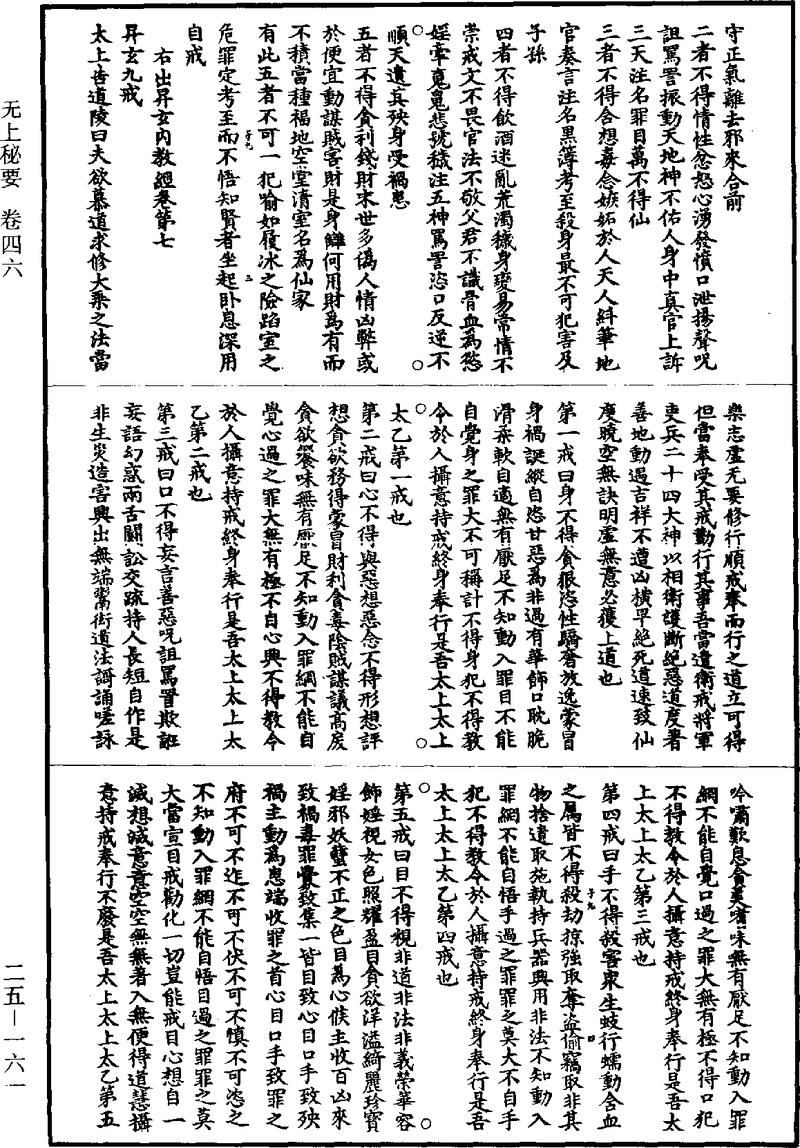 守正氣離去邪來合前
二者不得情性忿怒心湧發憤口泄揚聲呪
詛罵詈振動天地神不佑人身中真官上訴
三天注名罪目萬不得仙
三者不得含想毒念嫉妬於人天人糾筆地
官奏言注名黑簿考至殺身最不可犯害及
子孫
四者不得飲酒迷亂荒濁穢身變易常情不
崇戒文不畏官法不敬父君不識骨血為愁
婬牽䰟鬼悲號穢注五神罵詈恣口反逆不
順天遺兵殃身受禍患
五者不得貪利錢財末世多偽人情凶弊或
於便宜動謀賊害財是身讎何用財為有而
不積當種福地空堂清室名為仙家
有此五者不可一犯喻如履冰之險蹈室之
危罪定考至而不悟知賢者坐起卧息深用
自戒
右出昇玄內教經卷第七
昇玄九戒
太上告道陵曰夫欲慕道求修大乘之法當
樂志虛无要修行順戒奉而行之道立可得
但當奉受其戒勤行其事吾當遣衛戒將軍
吏兵二十四大神以相衛護斷絕惡道度著
善地動遇吉祥不遭凶橫早絕死道速致仙
度曉空無訣明虛無意必獲上道也
第一戒曰身不得貪狠恣性驕奢放逸蒙冒
身禍誕縱自恣甘惡為非過有華飾口耽脆
滑柔軟自適無有厭足不知動入罪目不能
自覺身之罪大不可稱計不得身犯不得教
令於人攝意持戒終身奉行是吾太上太上
太乙第一戒也
第二戒曰心不得與惡想惡念不得形想評
想貪欲務得蒙冒財利貪毒陰賊謀議高房
貪欲饕味無有厭足不知動入罪網不能自
覺心過之罪大無有極不自心興不得教令
於人攝意持戒終身奉行是吾太上太上太
乙第二戒也
第三戒曰口不得妄言善惡呪詛罵詈欺誑
妄語幻惑兩舌鬭訟交疏持人長短自作是
非生災造害興出無端鬻術道法謌誦嗟詠
吟嘯歎息貪美嗜味無有厭足不知動入罪
網不能自覺口過之罪大無有極不得口犯
不得教令於人攝意持戒終身奉行是吾太
上太上太乙第三戒也
第四戒曰手不得殺害衆生蚑行蠕動含血
之屬皆不得殺劫掠強取奪盜偷竊取非其
物捨遺取施執持兵器興用非法不知動入
罪網不能自悟手過之罪罪之莫大不自手
犯不得教令於人攝意持戒終身奉行是吾
太上太上太乙第四戒也
第五戒曰目不得視非道非法非義榮華容
飾婬視女色照耀盈目貪欲洋溢綺麗珍寶
婬邪妖孽不正之色目為心候主收百凶來
致禍毒罪釁致集一皆目致心目口手致殃
禍主動為患端收罪之首心目口手致罪之
府不可不迮不可不伏不可不慎不可恣之
不知動入罪網不能自悟目過之罪罪之莫
大當宣目戒勸化一切豈能戒目心想自一
滅想滅意意空空無無著入無便得道慧攝
意持戒奉行不廢是吾太上太上太乙第五
无上秘要 卷四六
二五—一六一